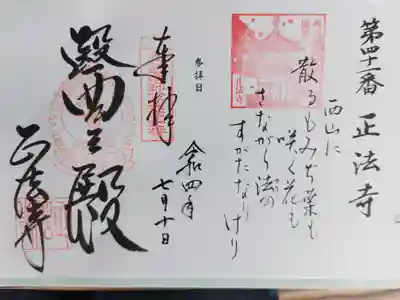 第四十一番 正法寺
西山に
散るもみち葉も
咲く花も
さながら法の
すがたなりけり
参拝日
奉拝
令四年
七月十日
醫王殿
正法寺